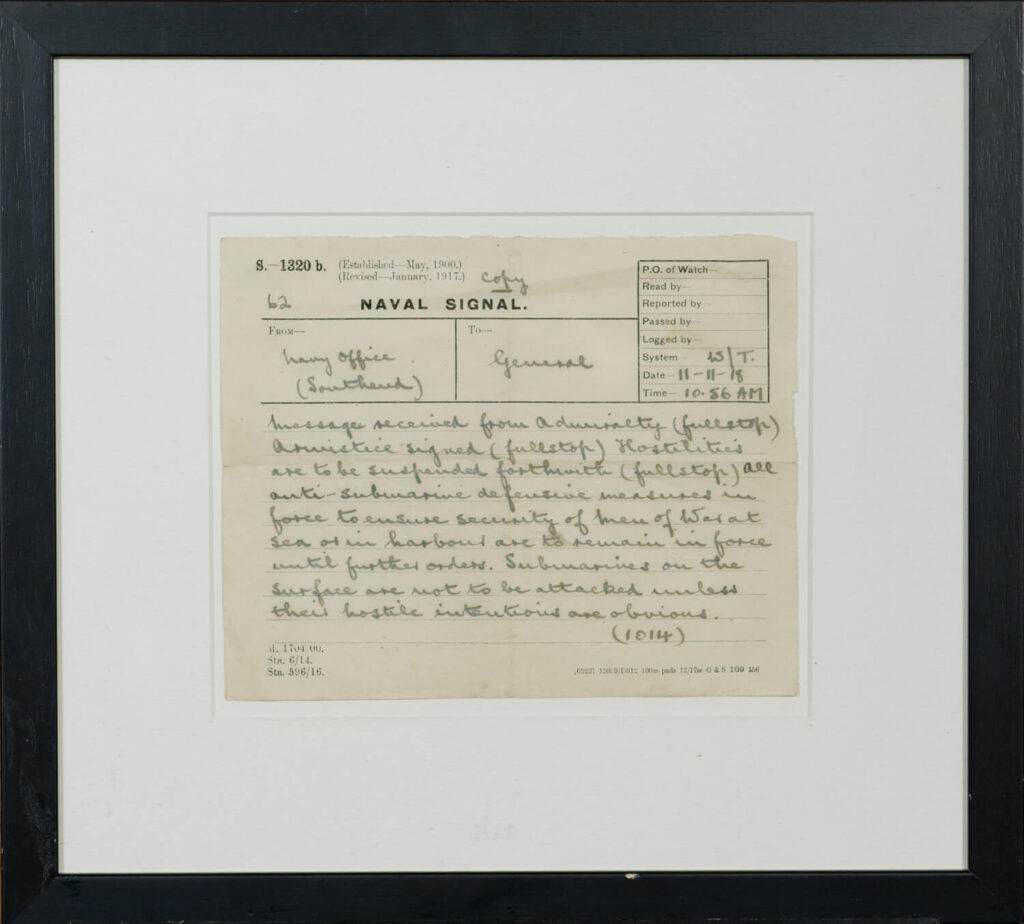 S.—1320 b. (Established—May, 1900.)
(Revised—January, 1917.)
Copy
62
NAVAL SIGNAL.
P.O. of Watch—
Read by—
Reported by—
Passed by—
Logged by—
System— W/T.
Date— 11-11-18
Time— 10.56 AM
From—
Navy Office.
(Southend)
To—
General
Message received from Admiralty (fullstop)
Armistice signed (fullstop) Hostilities
are to be suspended forthwith (fullstop) all
anti-submarine defensive measures in
force to ensure security of Men of War at
sea or in harbour are to remain in force
until further orders. Submarines on the
surface are not to be attacked unless
their hostile intentions are obvious.
(1014)
M. 1704/00.
Sta. 6/14.
Sta. 596/16.
100m pads 12/17 G & S 109